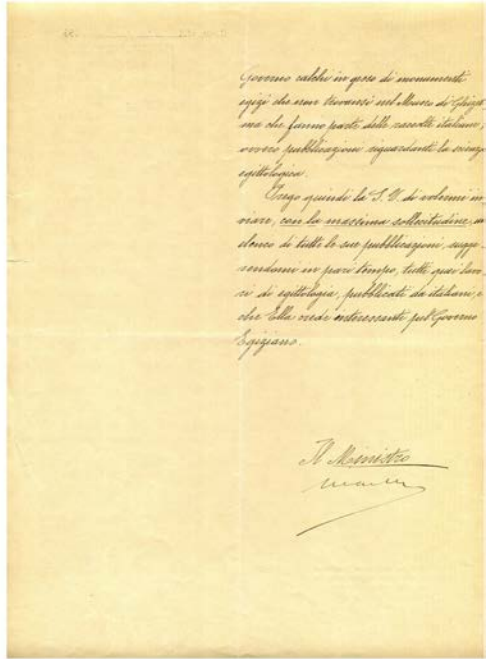 Governo calchi in gesso di monumenti
egizi che non trovansi nel Museo di Ghizeh
ma che fanno parte delle raccolte italiane,
ovvero pubblicazioni riguardanti la scienza
egittologica.
Prego quindi la S. V. di volermi in-
viare, con la massima sollecitudine, un
elenco di tutte le sue pubblicazioni, sugge-
rendomi in pari tempo, tutti quei lavo-
ri di egittologia, pubblicati da italiani, e
che Ella crede interessanti pel Governo
Egiziano.
Il Ministro